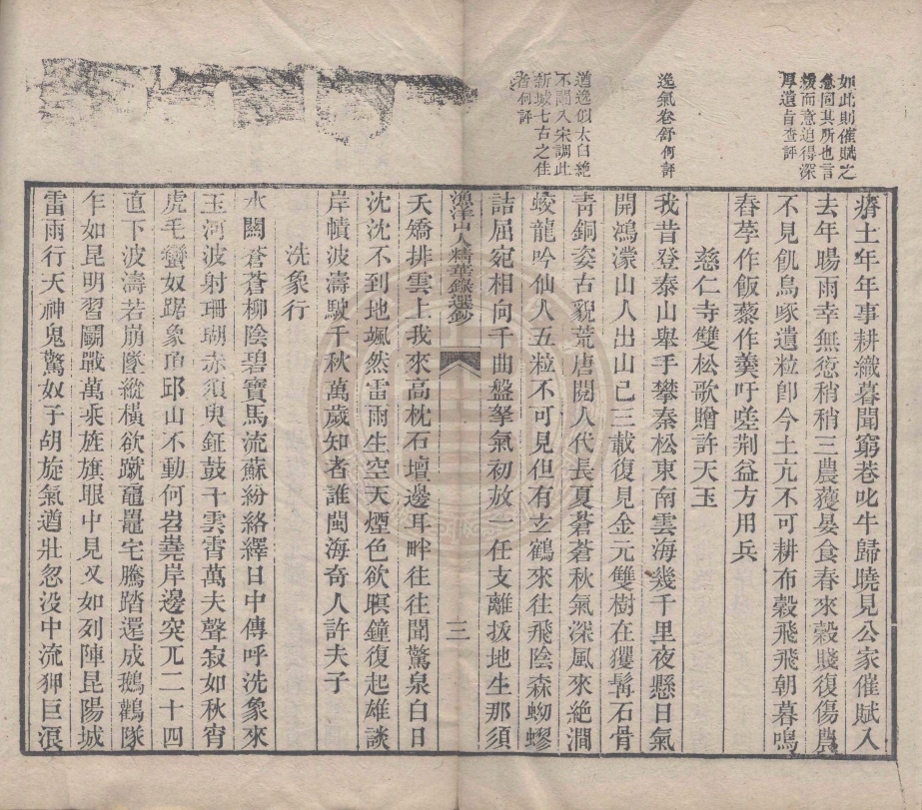 如此則催賦之
急同其所也言
緩而意迫得深
厚遺旨查評
逸氣卷舒何評
道逸似太白絶
不闌入宋調此
新城七古之佳
者何評
瘠土年年事耕織暮聞窮巷叱牛歸曉見公家催賦入
去年暘雨幸無愆稍稍三農獲晏食春來榖賤復傷農
不見飢烏啄遺粒卽今土亢不可耕布榖飛飛朝暮鳴
春荂作飯藜作羹吁嗟荆益方用兵
慈仁寺雙松歌贈許天玉
我昔登泰山舉手攀秦松東南雲海幾千里夜懸日氣
開鴻濛山人出山已三載復見金元雙樹在玃髯石骨
靑銅姿古貌荒唐閱人代長夏蒼蒼秋氣深風來絶澗
蛟龍吟仙人五粒不可見但有玄鶴來往飛陰森蚴蟉
詰屈宛相向千曲盤拏氣初放一任支離拔地生那須
漁洋山人精華錄選鈔
三
夭矯排雲上我來高枕石壇邊耳畔往往聞驚泉白日
沈沈不到地颯然雷雨生空天煙色欲暝鐘復起雄談
岸幘波濤駛千秋萬歲知者誰閩海奇人許夫子
洗象行
水關蒼蒼柳陰碧寶馬流蘇紛絡繹日中傳呼洗象來
玉河波射珊瑚赤須臾鉦鼓干雲霄萬夫聲寂如秋宵
虎毛蠻奴踞象𩠐邱山不動何岧嶤岸邊突兀二十四
直下波濤若崩墜縱橫欲蹴黿鼉宅騰踏還成鵝鸛隊
乍如昆明習鬭戰萬乘旌旗眼中見又如列陣昆陽城
雷雨行天神鬼驚奴子胡旋氣遒壯忽没中流狎巨浪